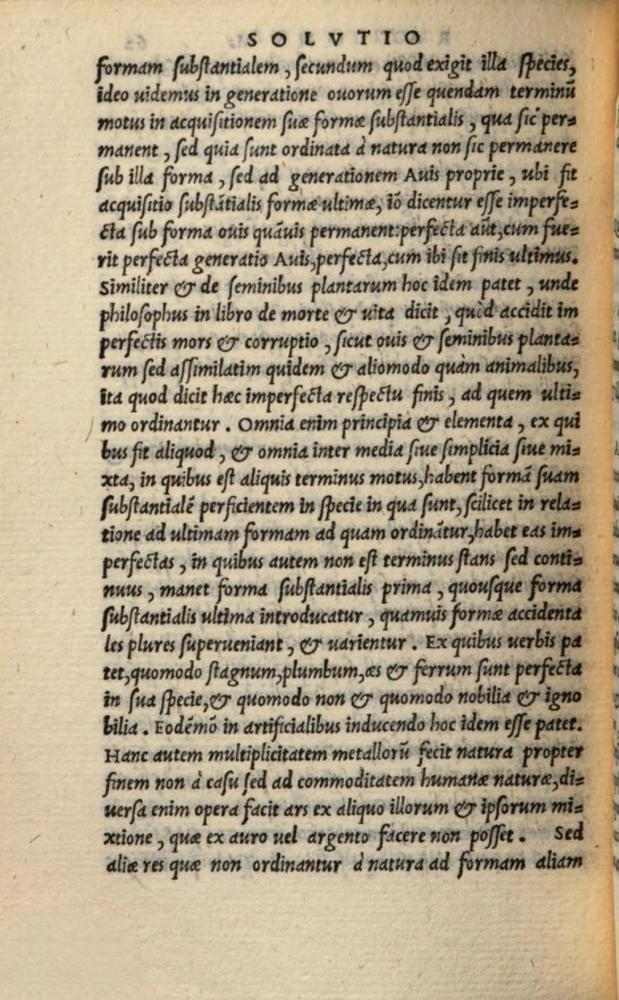 SOLVTIO
formam substantialem, secundum quod exigit illa species,
ideo uidemus in generatione ouorum esse quendam terminū
motus in acquisitionem suæ formæ substantialis, qua sic per=
manent, sed quia sunt ordinata à natura non sic permanere
sub illa forma, sed ad generationem Auis proprie, ubi fit
acquisitio substātialis formæ ultimæ, iō dicentur esse imperfe=
cta sub forma ouis quāuis permanent: perfecta aūt, cum fue=
rit perfecta generatio Auis, perfecta, cum ibi sit finis ultimus.
Similiter & de seminibus plantarum hoc idem patet, unde
philosophus in libro de morte & uita dicit, quòd accidit im
perfectis mors & corruptio, sicut ouis & seminibus planta=
rum sed assimilatim quidem & aliomodo quàm animalibus,
ita quod dicit hæc imperfecta respectu finis, ad quem ulti=
mo ordinantur. Omnia enim principia & elementa, ex qui
bus fit aliquod, & omnia inter media siue simplicia siue mi=
xta, in quibus est aliquis terminus motus, habent formā suam
substantialē perficientem in specie in qua sunt, scilicet in rela=
tione ad ultimam formam ad quam ordināтur, habet eas im=
perfectas, in quibus autem non est terminus stans sed conti=
nuus, manet forma substantialis prima, quousque forma
substantialis ultima introducatur, quamuis formæ accidenta
les plures superueniant, & uarientur. Ex quibus uerbis pa
tet, quomodo stagnum, plumbum, æs & ferrum sunt perfecta
in sua specie, & quomodo non & quomodo nobilia & igno
bilia. Eodēmō in artificialibus inducendo hoc idem esse patet.
Hanc autem multiplicitatem metallorū fecit natura propter
finem non à casu sed ad commoditatem humanæ naturæ, di=
uersa enim opera facit ars ex aliquo illorum & ipsorum mi=
xtione, quæ ex auro uel argento facere non posset. Sed
aliæ res quæ non ordinantur à natura ad formam aliam